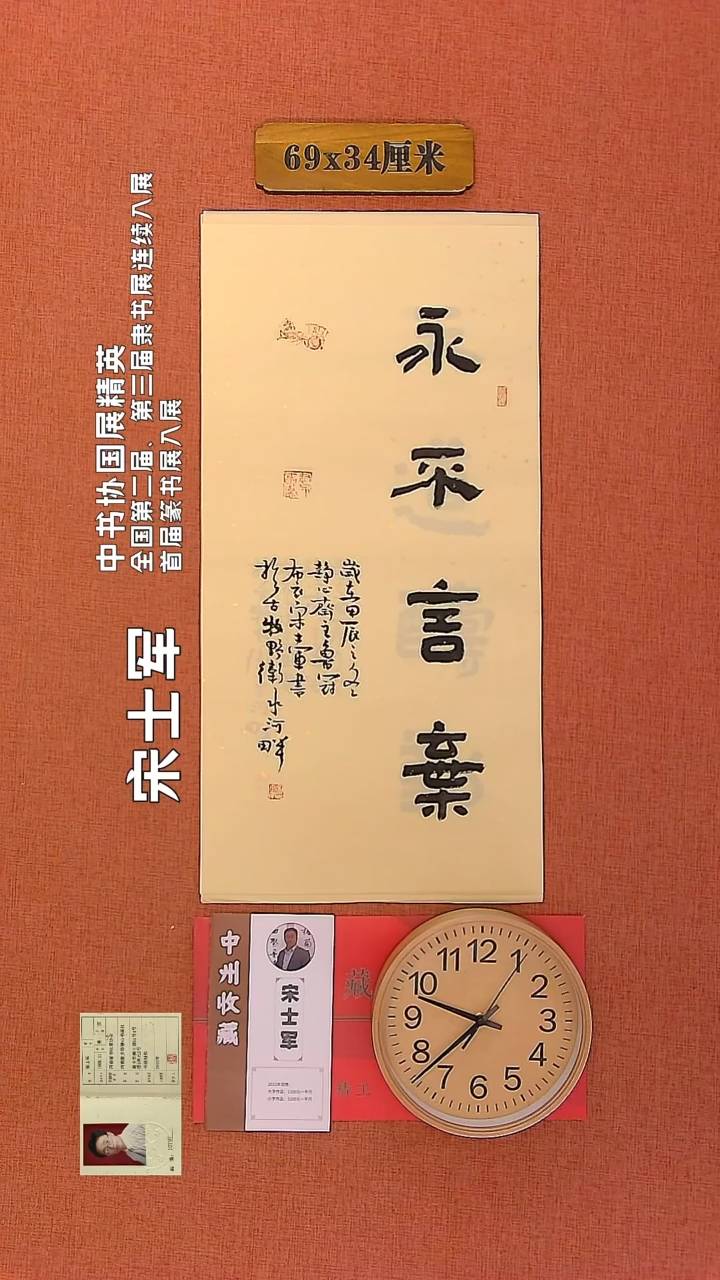 69x34厘米
永不言棄
歲在甲辰之冬
静心齋主
布衣宋士軍書
於古牧野衛水河畔
中书协国展精英
全国第二届、第三届隶书展连续入展
首届篆书展入展
宋士军
收藏
宋士军
藏
12
1
2
3
4
5
6
7
8
9
10
11